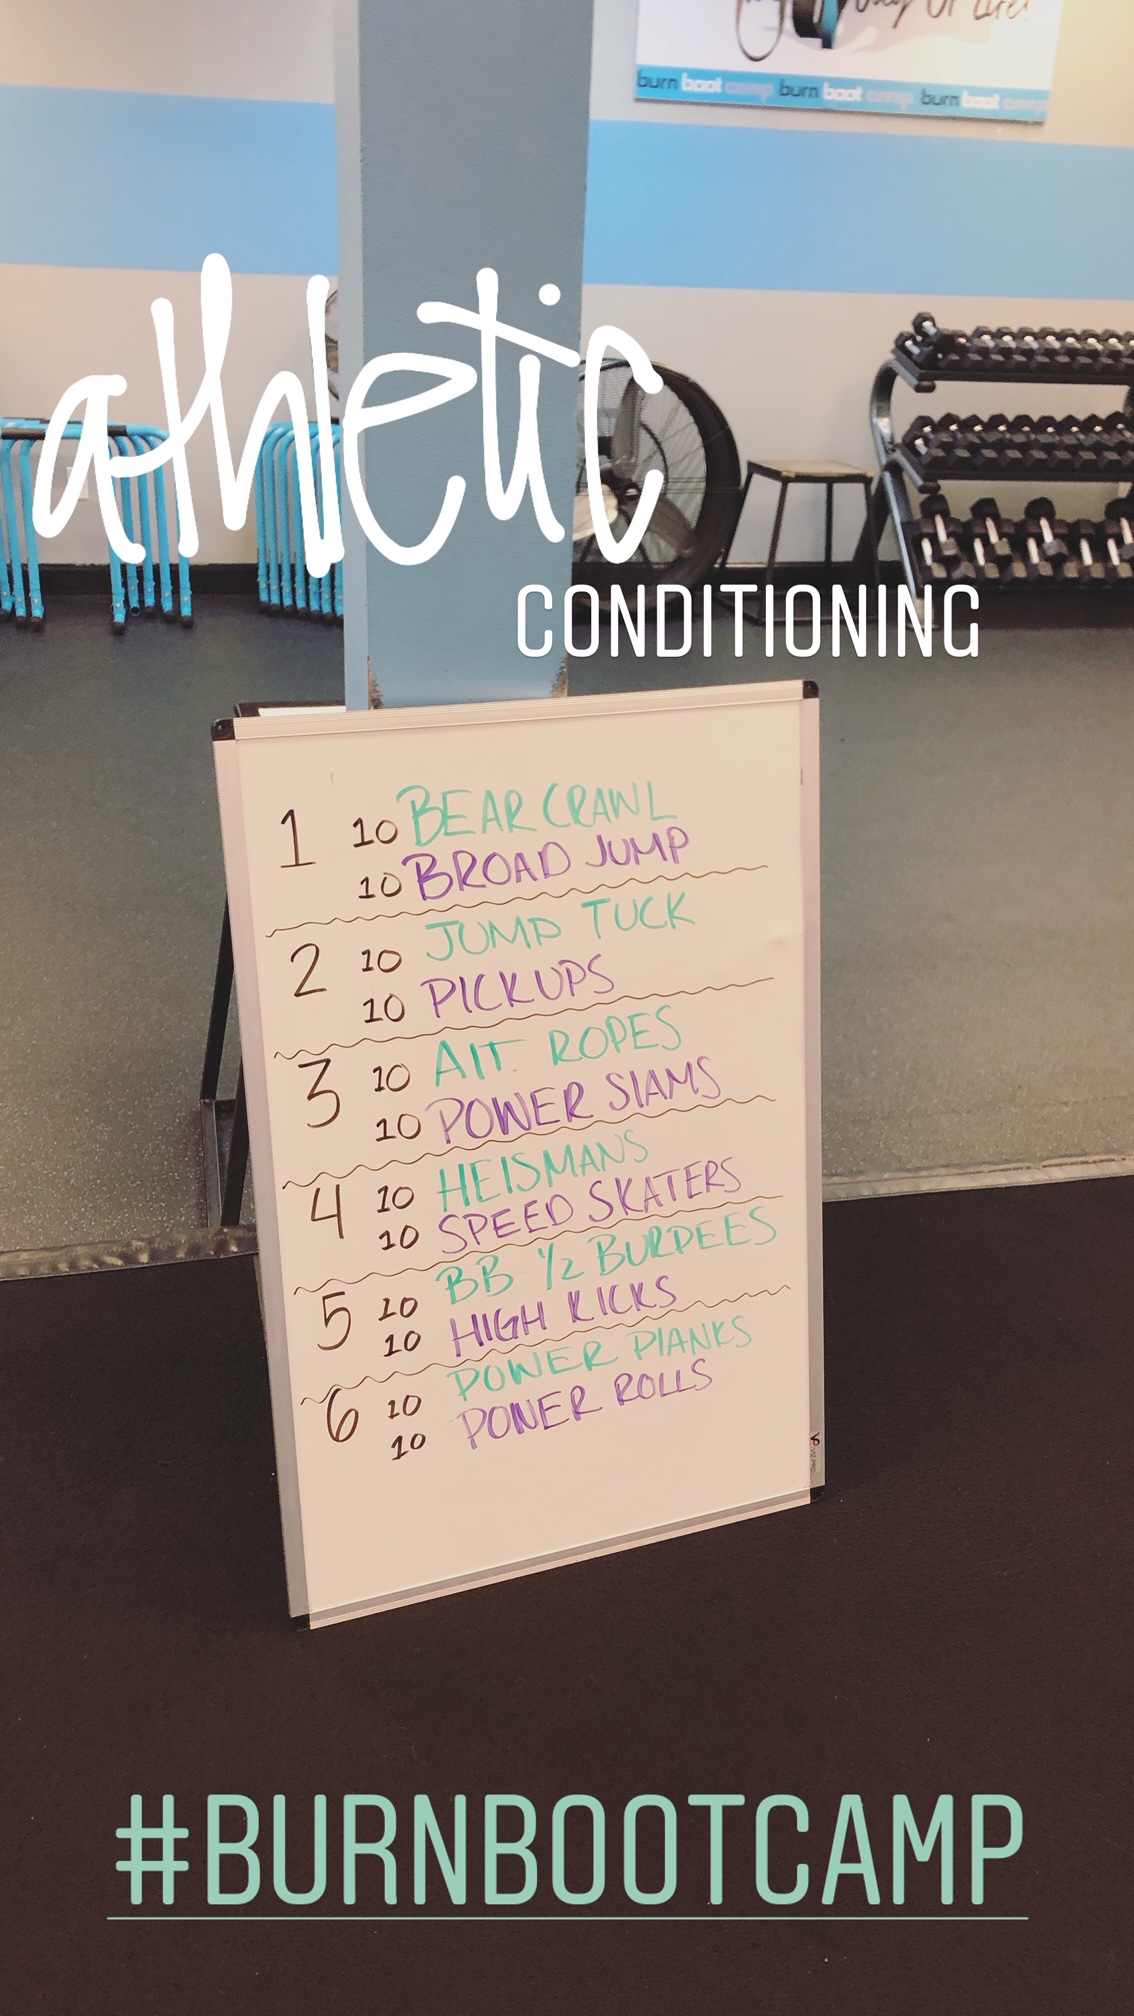 Way Of Life!
burn boot camp burn boot camp burn boot camp
athletic
CONDITIONING
1 10 BEAR CRAWL
10 BROAD JUMP
2 10 JUMP TUCK
10 PICKUPS
3 10 AlT. ROPES
10 POWER SlAMS
4 10 HEISMANS
10 SPEED SKATERS
5 10 BB 1/2 BURPEES
10 HIGH KICKS
6 10 POWER PlANKS
10 POWER ROLLS
#BURNBOOTCAMP